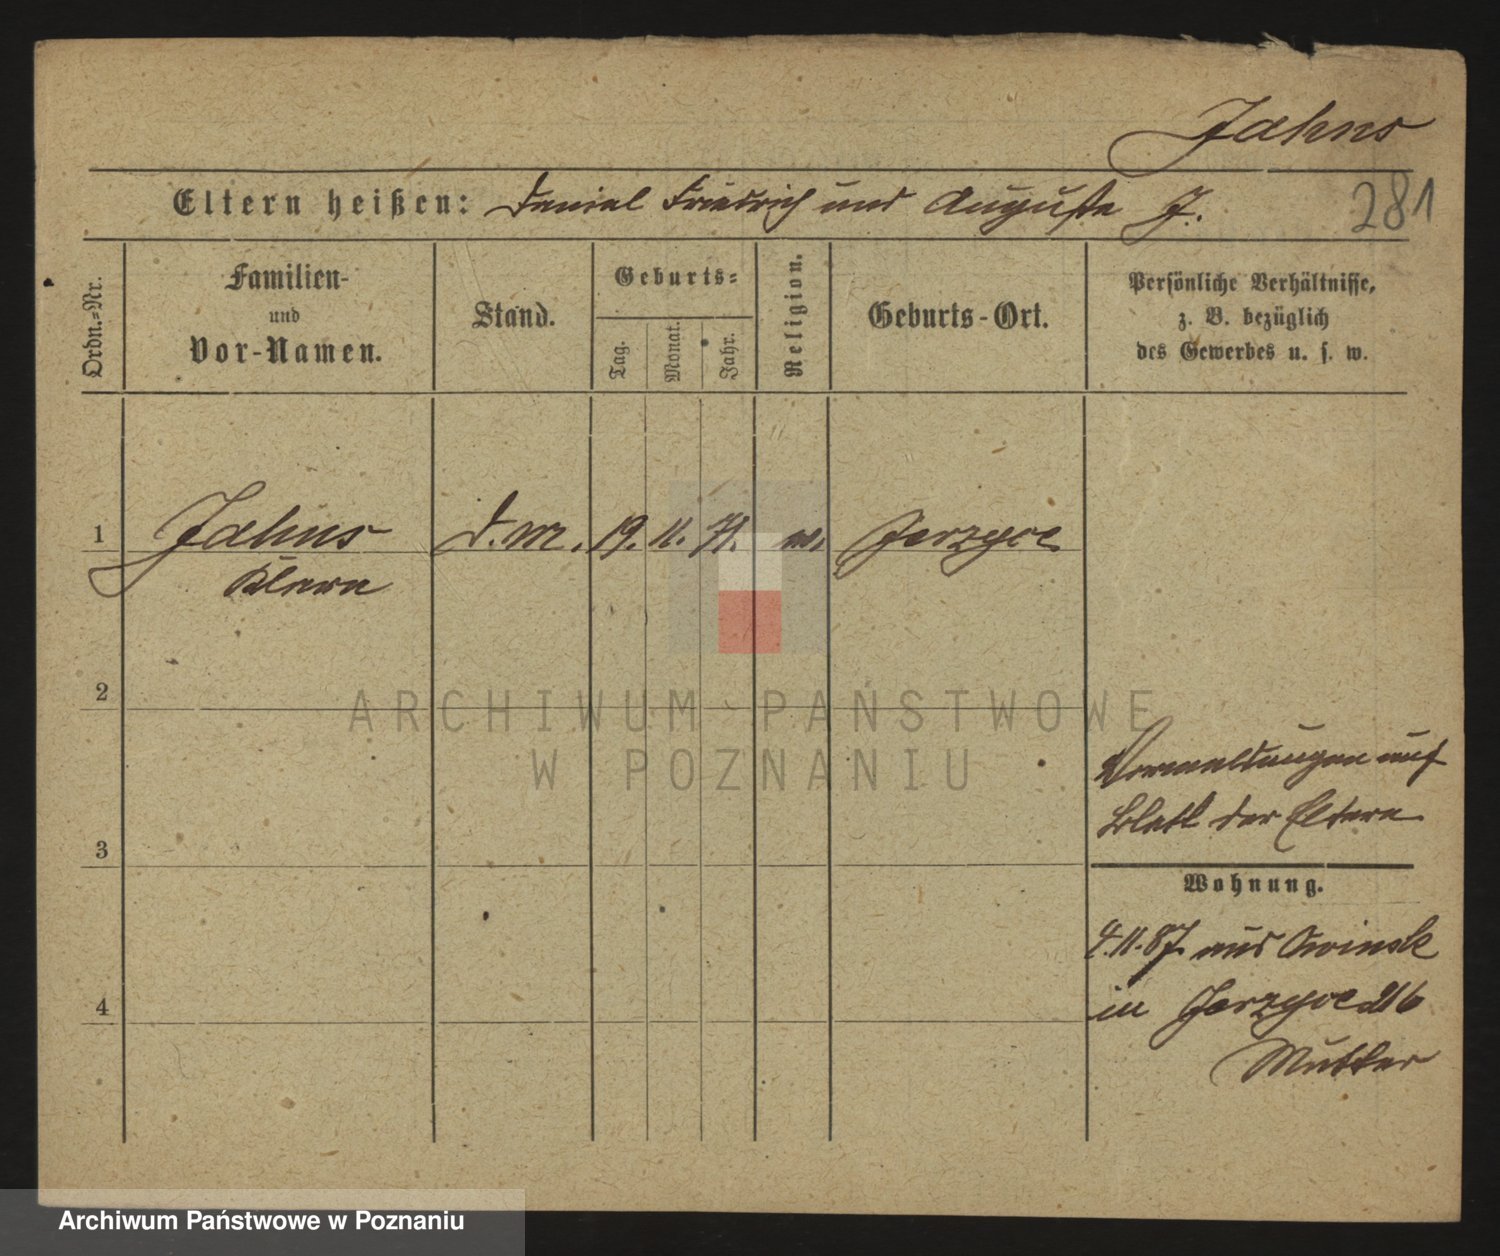 Jahns
Eltern heißen: Daniel Friedrich und Auguste J.
281
Ordn.-Nr.
Familien-
und
Vor-Namen.
Stand.
Geburts-
Tag.
Monat.
Jahr.
Religion.
Geburts-Ort.
Persönliche Verhältnisse,
z. B. bezüglich
des Gewerbes u. s. w.
1 Jahns D. M. 19. 11. 71. ev. Jerzyce
Klara
2
ARCHIWUM PAŃSTWOWE
W POZNANIU
auf
Blatt der Eltern
3
Wohnung.
4.11.87. aus Owinsk
in Jerzyce 216
4
Mutter
Archiwum Państwowe w Poznaniu